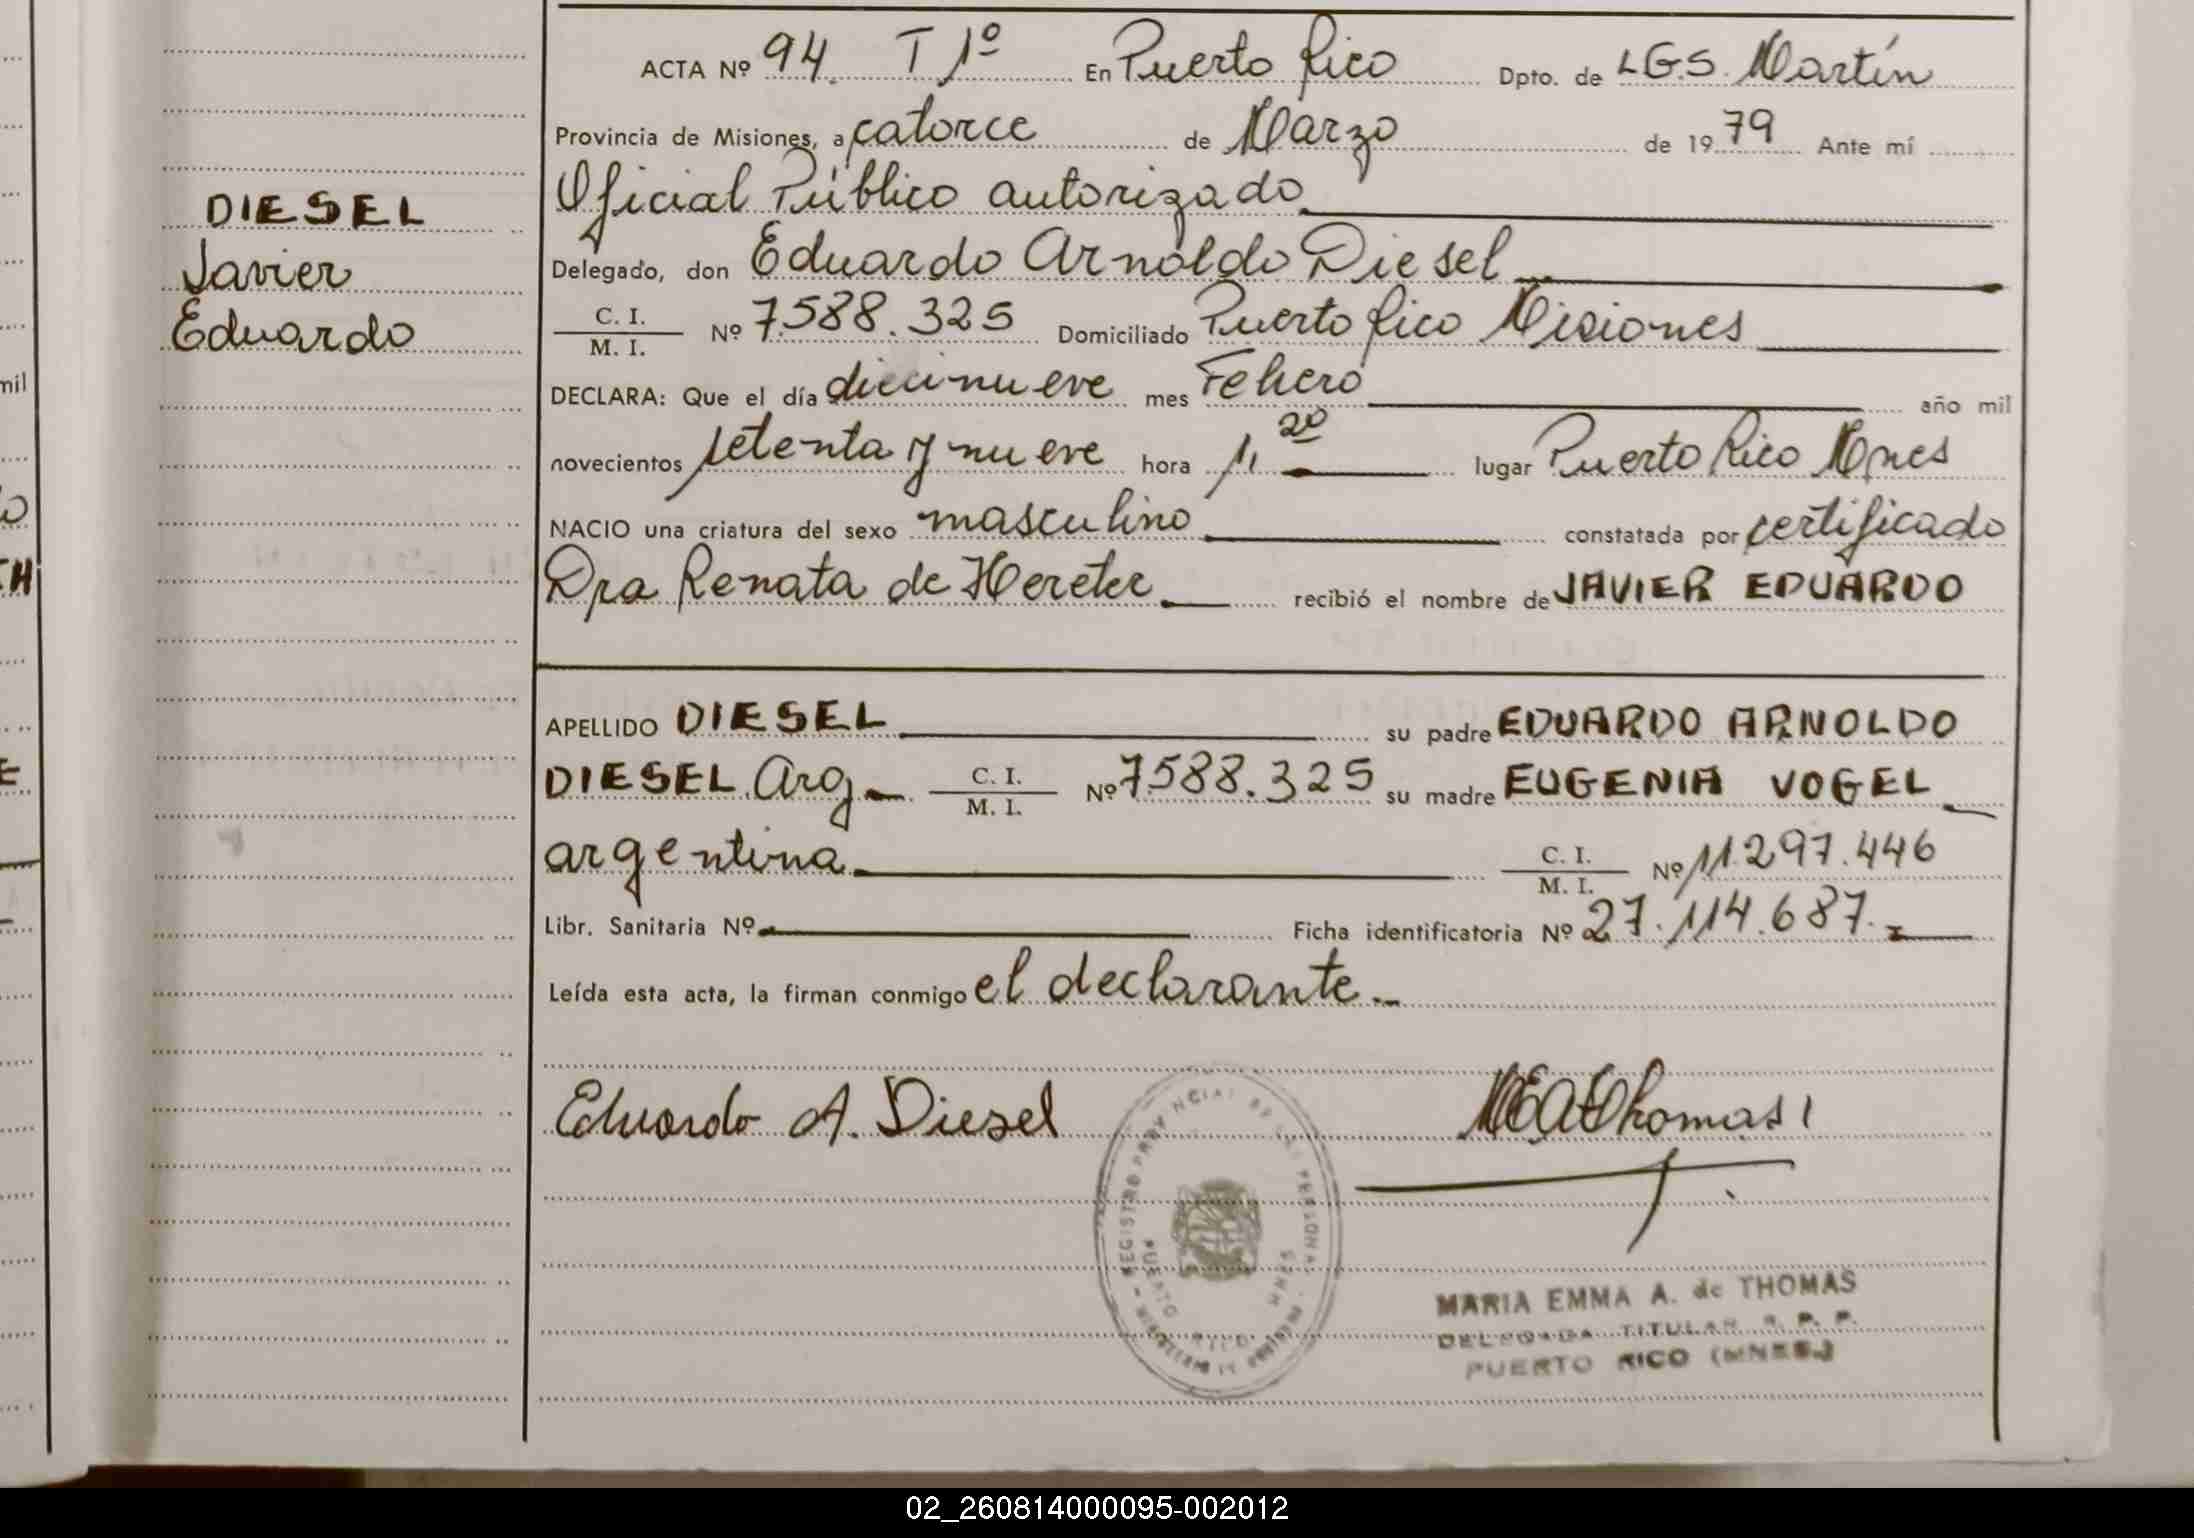 ACTA Nº 94. T 1º En Puerto Rico Dpto. de L.G.S. Martín
Provincia de Misiones, a catorce de Marzo de 1979 Ante mí
Oficial Público autorizado
DIESEL
Javier
Eduardo
Delegado, don Eduardo Arnoldo Diesel
C. I.
M. I. Nº 7.588.325 Domiciliado Puerto Rico Misiones
DECLARA: Que el día diecinueve mes Febrero año mil
novecientos setenta y nueve hora 1,20 lugar Puerto Rico Mnes
NACIO una criatura del sexo masculino constatada por certificado
Dra Renata de Hereter recibió el nombre de JAVIER EDUARDO
APELLIDO DIESEL su padre EDUARDO ARNOLDO
DIESEL Arg. C. I.
M. I. Nº 7.588.325 su madre EUGENIA VOGEL
argentina C. I.
M. I. Nº 11.297.446
Libr. Sanitaria Nº Ficha identificatoria Nº 27.114.687.-
Leída esta acta, la firman conmigo el declarante.-
Eduardo A. Diesel
MEAdeThomas
REGISTRO PROVINCIAL DE LAS PERSONAS
PUERTO RICO MNES
MARIA EMMA A. de THOMAS
DELEGADA TITULAR R. P. P.
PUERTO RICO (MNES.)
mil
02_260814000095-002012